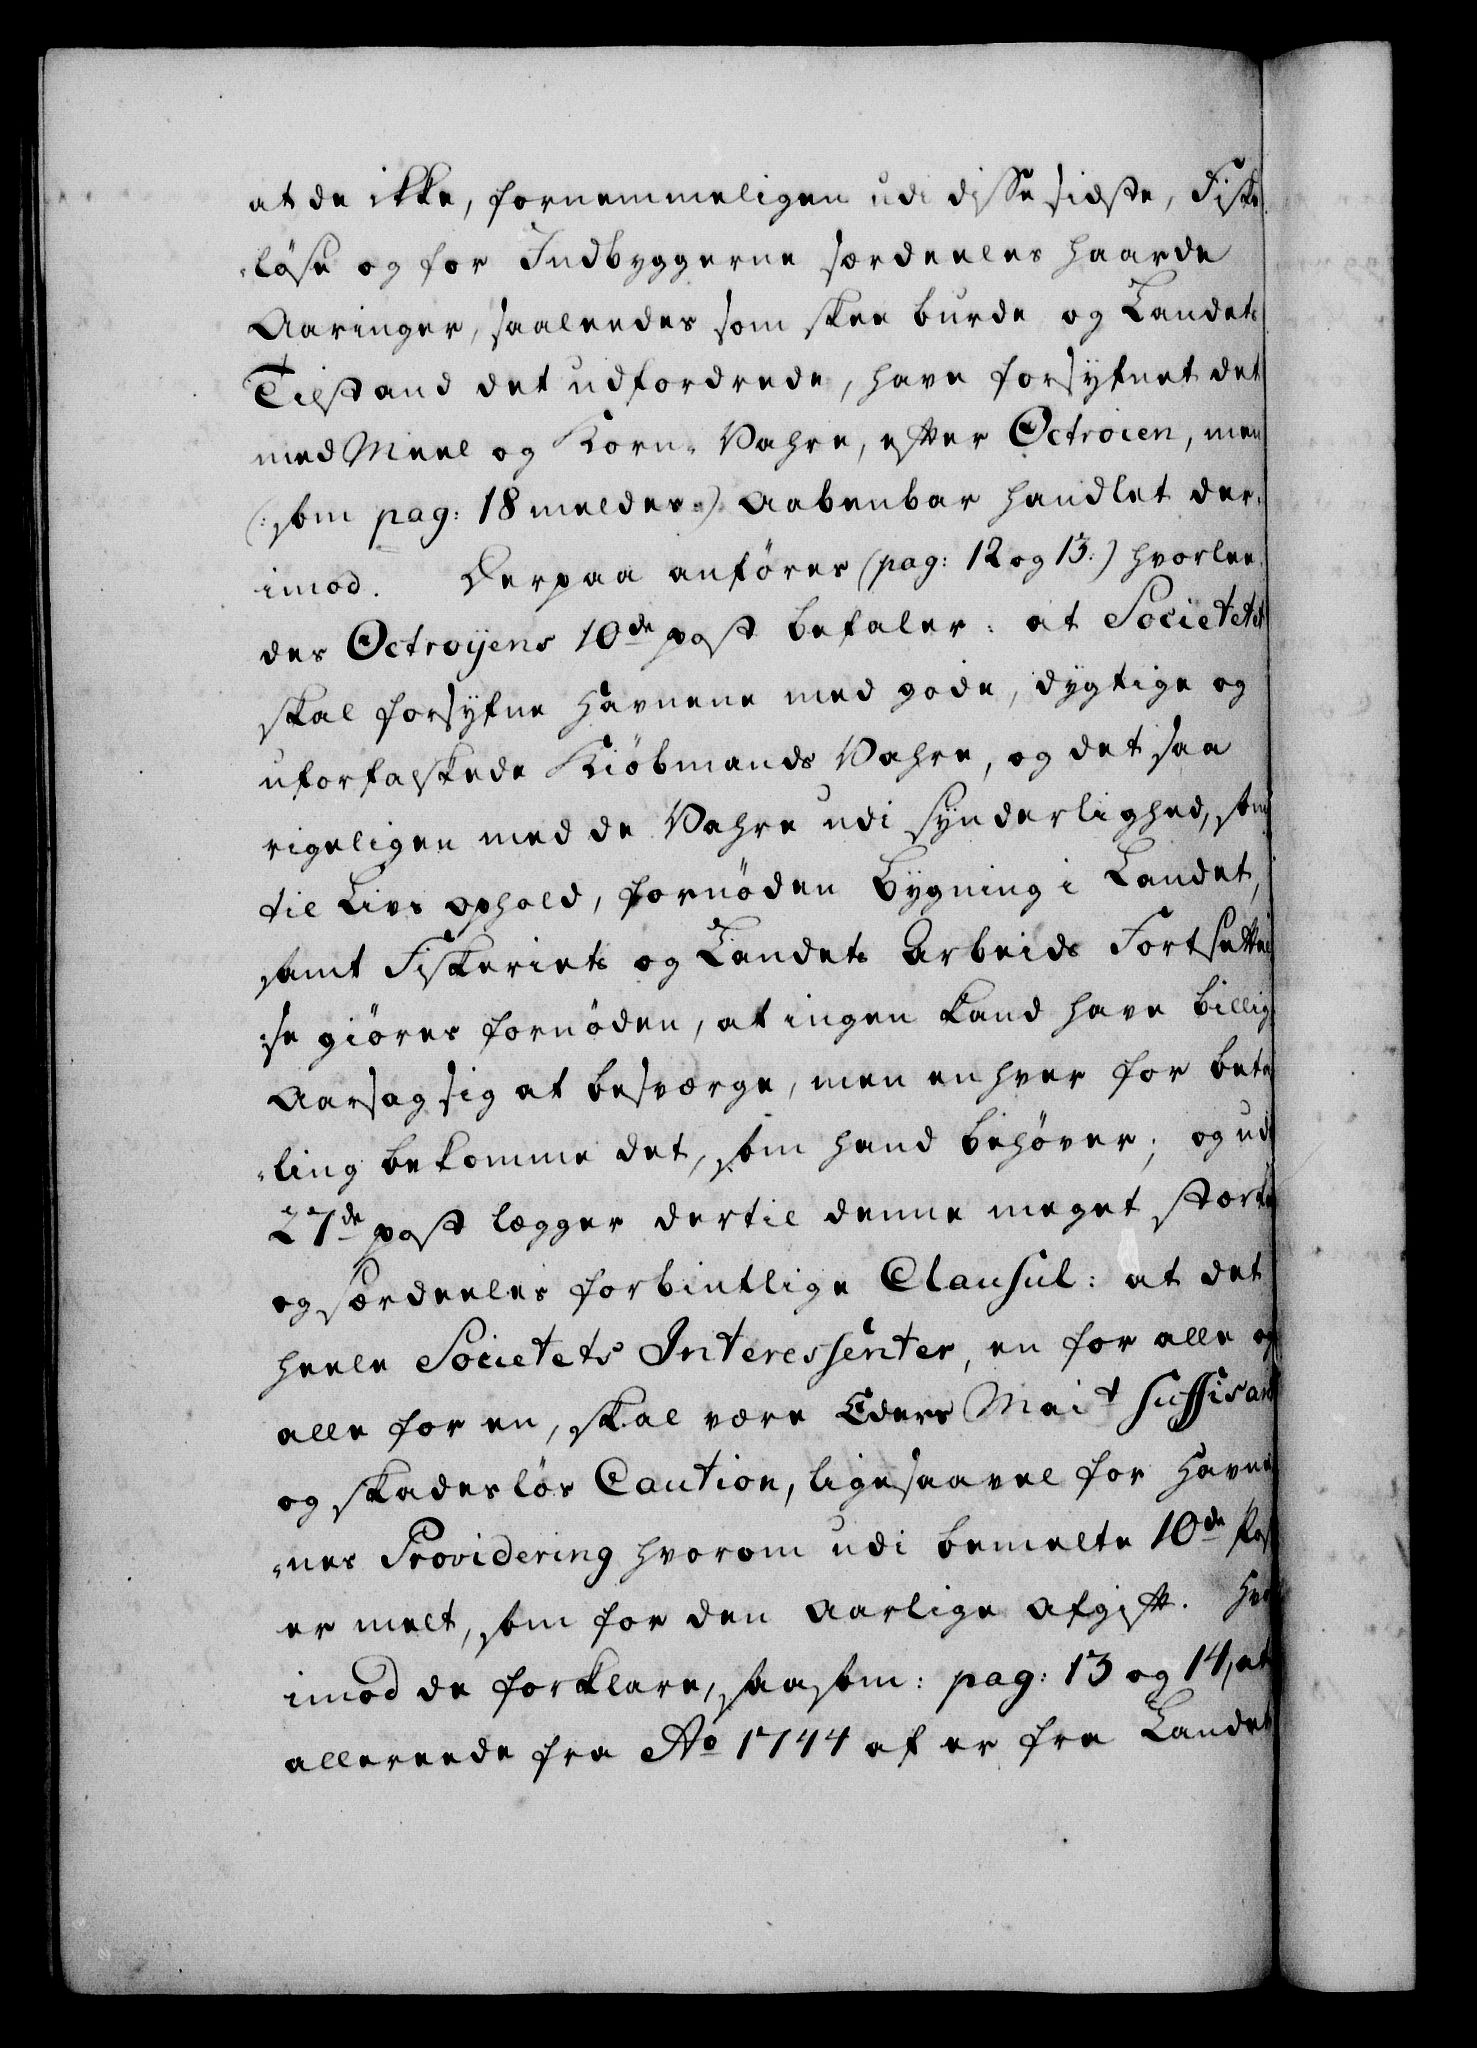 at de ikke, fornemmeligen udi disse sidste, Fiske
-løse og for Indbyggerne særdeeles haarde
Aaringer, saaleedes som skee burde og Landets
Tilstand det udfordrede, have forsyfnet det
med Meel og Korn-Vahre, efter Octroien, men
(: som pag: 18 melder :) Aabenbar handlet der-
imod. Derpaa anføres (pag: 12 og 13:) hvorlee-
des Octroyens 10de post befaler: at Societetet
skal forsyfne Havnene med gode, dygtige og
uforfalskede Kiøbmands Vahre, og det saa
rigeligen med de Vahre udi synderlighed, som
til Livs ophold, fornøden Bygning i Landet,
samt Fiskeriets og Landets Arbeids Fortsettel
:se giøres fornøden, at ingen kand have billig
Aarsag sig at besværge, men en hver for beta
-ling bekomme det, som hand behøver; og udi
27de post lægger dertil denne meget stærke
og særdeeles forbintlige Clausul: at det
heele Societets Interessenter, en for alle og
alle for en, skal være Eders Mait suffisant
og skadesløs Caution, ligesaavel for Havne
-nes Providering hvorom udi bemelte 10de Post
er melt, som for den Aarlige Afgift. Hvor
imod de forklare, saasom: pag: 13 og 14, at
allereede fra Ao 1744 af er fra Landet